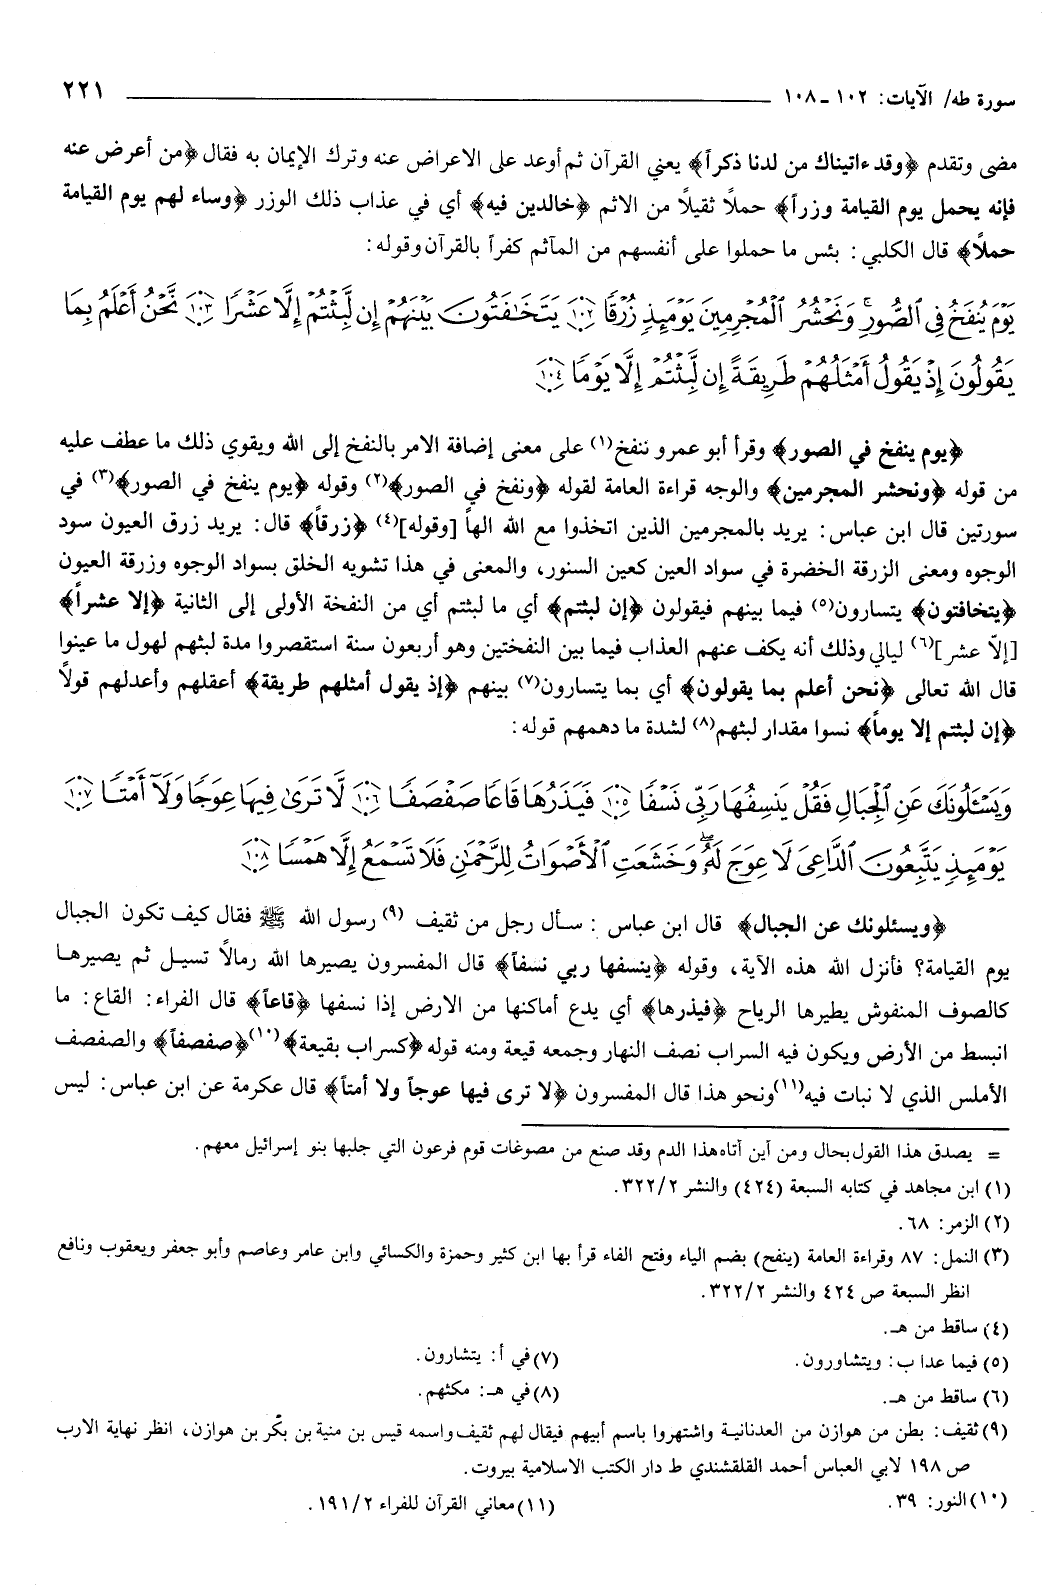 سورة طه/ الآيات: ١٠٢ ـ ١٠٨ ٢٢١
مضى وتقدم ﴿وقد ءاتيناك من لدنا ذكراً﴾ يعني القرآن ثم أوعد على الاعراض عنه وترك الإيمان به فقال ﴿من أعرض عنه
فإنه يحمل يوم القيامة وزراً﴾ حملاً ثقيلاً من الاثم ﴿خالدين فيه﴾ أي في عذاب ذلك الوزر ﴿وساء لهم يوم القيامة
حملاً﴾ قال الكلبي: بئس ما حملوا على أنفسهم من المآثم كفراً بالقرآن وقوله:
يَوْمَ يُنفَخُ فِي ٱلصُّورِ ۚ وَنَحْشُرُ ٱلْمُجْرِمِينَ يَوْمَئِذٍ زُرْقًا ١٠٢ يَتَخَٰفَتُونَ بَيْنَهُمْ إِن لَّبِثْتُمْ إِلَّا عَشْرًا ١٠٣ نَّحْنُ أَعْلَمُ بِمَا
يَقُولُونَ إِذْ يَقُولُ أَمْثَلُهُمْ طَرِيقَةً إِن لَّبِثْتُمْ إِلَّا يَوْمًا ١٠٤
﴿يوم ينفخ في الصور﴾ وقرأ أبو عمرو ننفخ(١) على معنى إضافة الامر بالنفخ إلى الله ويقوي ذلك ما عطف عليه
من قوله ﴿ونحشر المجرمين﴾ والوجه قراءة العامة لقوله ﴿ونفخ في الصور﴾(٢) وقوله ﴿يوم ينفخ في الصور﴾(٣) في
سورتين قال ابن عباس: يريد بالمجرمين الذين اتخذوا مع الله الهاً [وقوله](٤) ﴿زرقاً﴾ قال: يريد زرق العيون سود
الوجوه ومعنى الزرقة الخضرة في سواد العين كعين السنور، والمعنى في هذا تشويه الخلق بسواد الوجوه وزرقة العيون
﴿يتخافتون﴾ يتسارون(٥) فيما بينهم فيقولون ﴿إن لبثتم﴾ أي ما لبثتم أي من النفخة الأولى إلى الثانية ﴿إلا عشراً﴾
[إلاّ عشر](٦) ليالي وذلك أنه يكف عنهم العذاب فيما بين النفختين وهو أربعون سنة استقصروا مدة لبثهم لهول ما عينوا
قال الله تعالى ﴿نحن أعلم بما يقولون﴾ أي بما يتسارون(٧) بينهم ﴿إذ يقول أمثلهم طريقة﴾ أعقلهم وأعدلهم قولاً
﴿إن لبثتم إلا يوماً﴾ نسوا مقدار لبثهم(٨) لشدة ما دهمهم قوله:
وَيَسْـَٔلُونَكَ عَنِ ٱلْجِبَالِ فَقُلْ يَنسِفُهَا رَبِّي نَسْفًا ١٠٥ فَيَذَرُهَا قَاعًا صَفْصَفًا ١٠٦ لَّا تَرَىٰ فِيهَا عِوَجًا وَلَآ أَمْتًا ١٠٧
يَوْمَئِذٍ يَتَّبِعُونَ ٱلدَّاعِيَ لَا عِوَجَ لَهُۥ ۖ وَخَشَعَتِ ٱلْأَصْوَاتُ لِلرَّحْمَٰنِ فَلَا تَسْمَعُ إِلَّا هَمْسًا ١٠٨
﴿ويسئلونك عن الجبال﴾ قال ابن عباس : سأل رجل من ثقيف (٩) رسول الله ﷺ فقال كيف تكون الجبال
يوم القيامة؟ فأنزل الله هذه الآية، وقوله ﴿ينسفها ربي نسفاً﴾ قال المفسرون يصيرها الله رمالاً تسيل ثم يصيرها
كالصوف المنفوش يطيرها الرياح ﴿فيذرها﴾ أي يدع أماكنها من الارض إذا نسفها ﴿قاعاً﴾ قال الفراء: القاع: ما
انبسط من الأرض ويكون فيه السراب نصف النهار وجمعه قيعة ومنه قوله ﴿كسراب بقيعة﴾(١٠) ﴿صفصفاً﴾ والصفصف
الأملس الذي لا نبات فيه(١١) ونحو هذا قال المفسرون ﴿لا ترى فيها عوجاً ولا أمتاً﴾ قال عكرمة عن ابن عباس: ليس
= يصدق هذا القول بحال ومن أين أتاه هذا الدم وقد صنع من مصوغات قوم فرعون التي جلبها بنو إسرائيل معهم.
(١) ابن مجاهد في كتابه السبعة (٤٢٤) والنشر ٣٢٢/٢.
(٢) الزمر: ٦٨.
(٣) النمل: ٨٧ وقراءة العامة (ينفح) بضم الياء وفتح الفاء قرأ بها ابن كثير وحمزة والكسائي وابن عامر وعاصم وأبو جعفر ويعقوب ونافع
انظر السبعة ص ٤٢٤ والنشر ٣٢٢/٢.
(٤) ساقط من هـ.
(٥) فيما عدا ب: ويتشاورون. (٧) في أ: يتشارون.
(٦) ساقط من هـ. (٨) في هـ: مكثهم.
(٩) ثقيف: بطن من هوازن من العدنانية واشتهروا باسم أبيهم فيقال لهم ثقيف واسمه قيس بن منية بن بكّر بن هوازن، انظر نهاية الارب
ص ١٩٨ لابي العباس أحمد القلقشندي ط دار الكتب الاسلامية بيروت.
(١٠) النور: ٣٩. (١١) معاني القرآن للفراء ١٩١/٢.